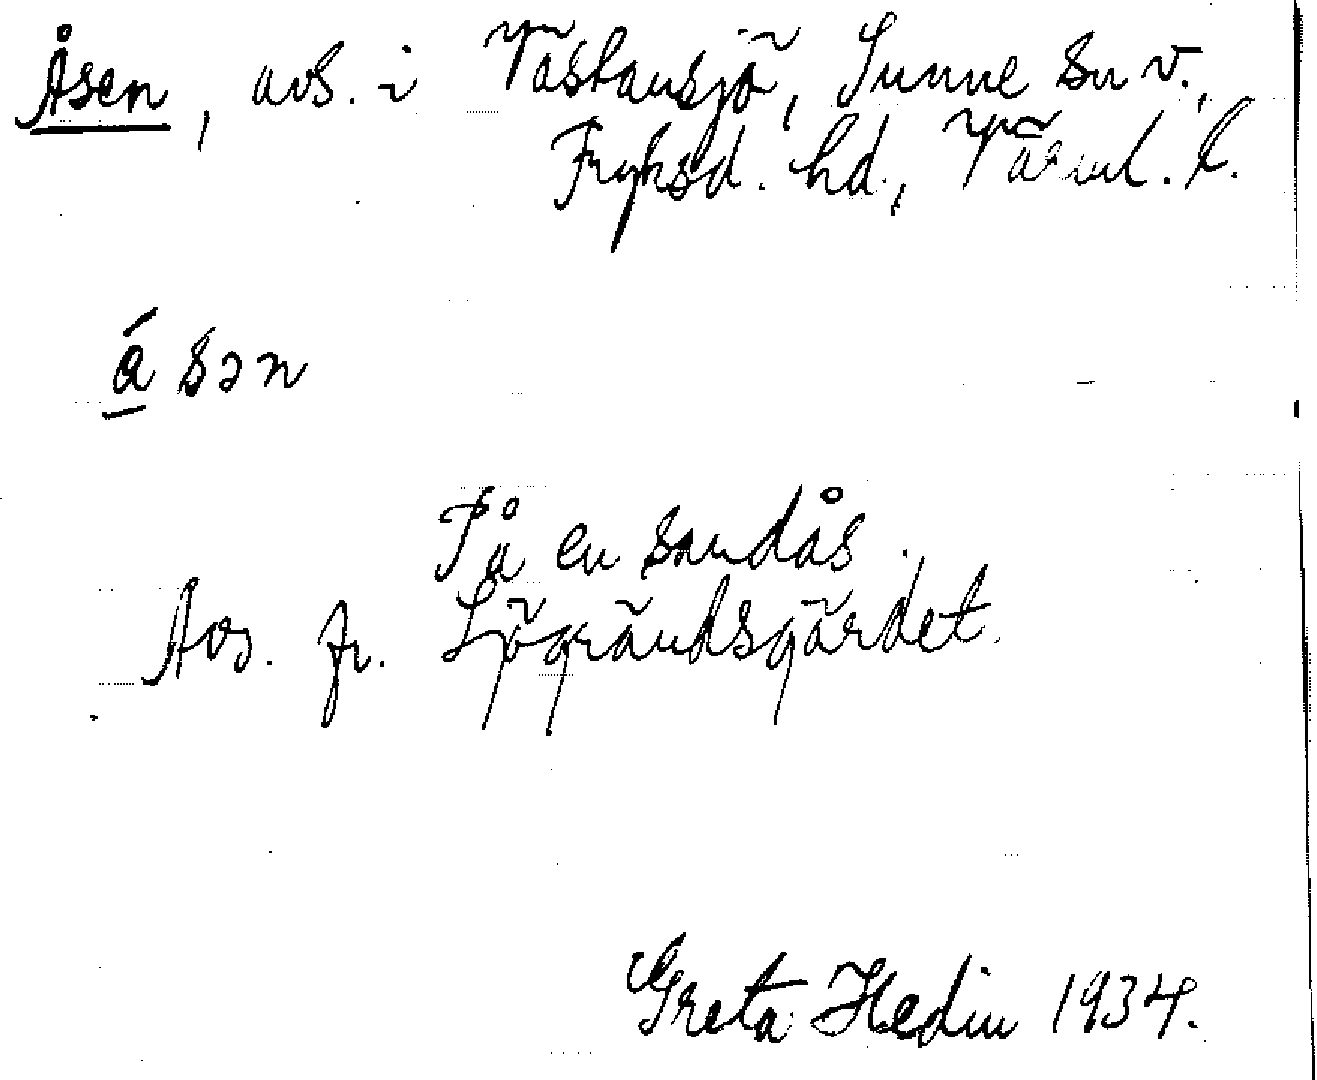 Åsen, avs. i Västansjö, Sunne sn v.,
Fryksd. hd., Värml. l.
ǻsən
På en sandås.
Avs. fr. Sjögrändsgärdet.
Greta Hedin 1934.